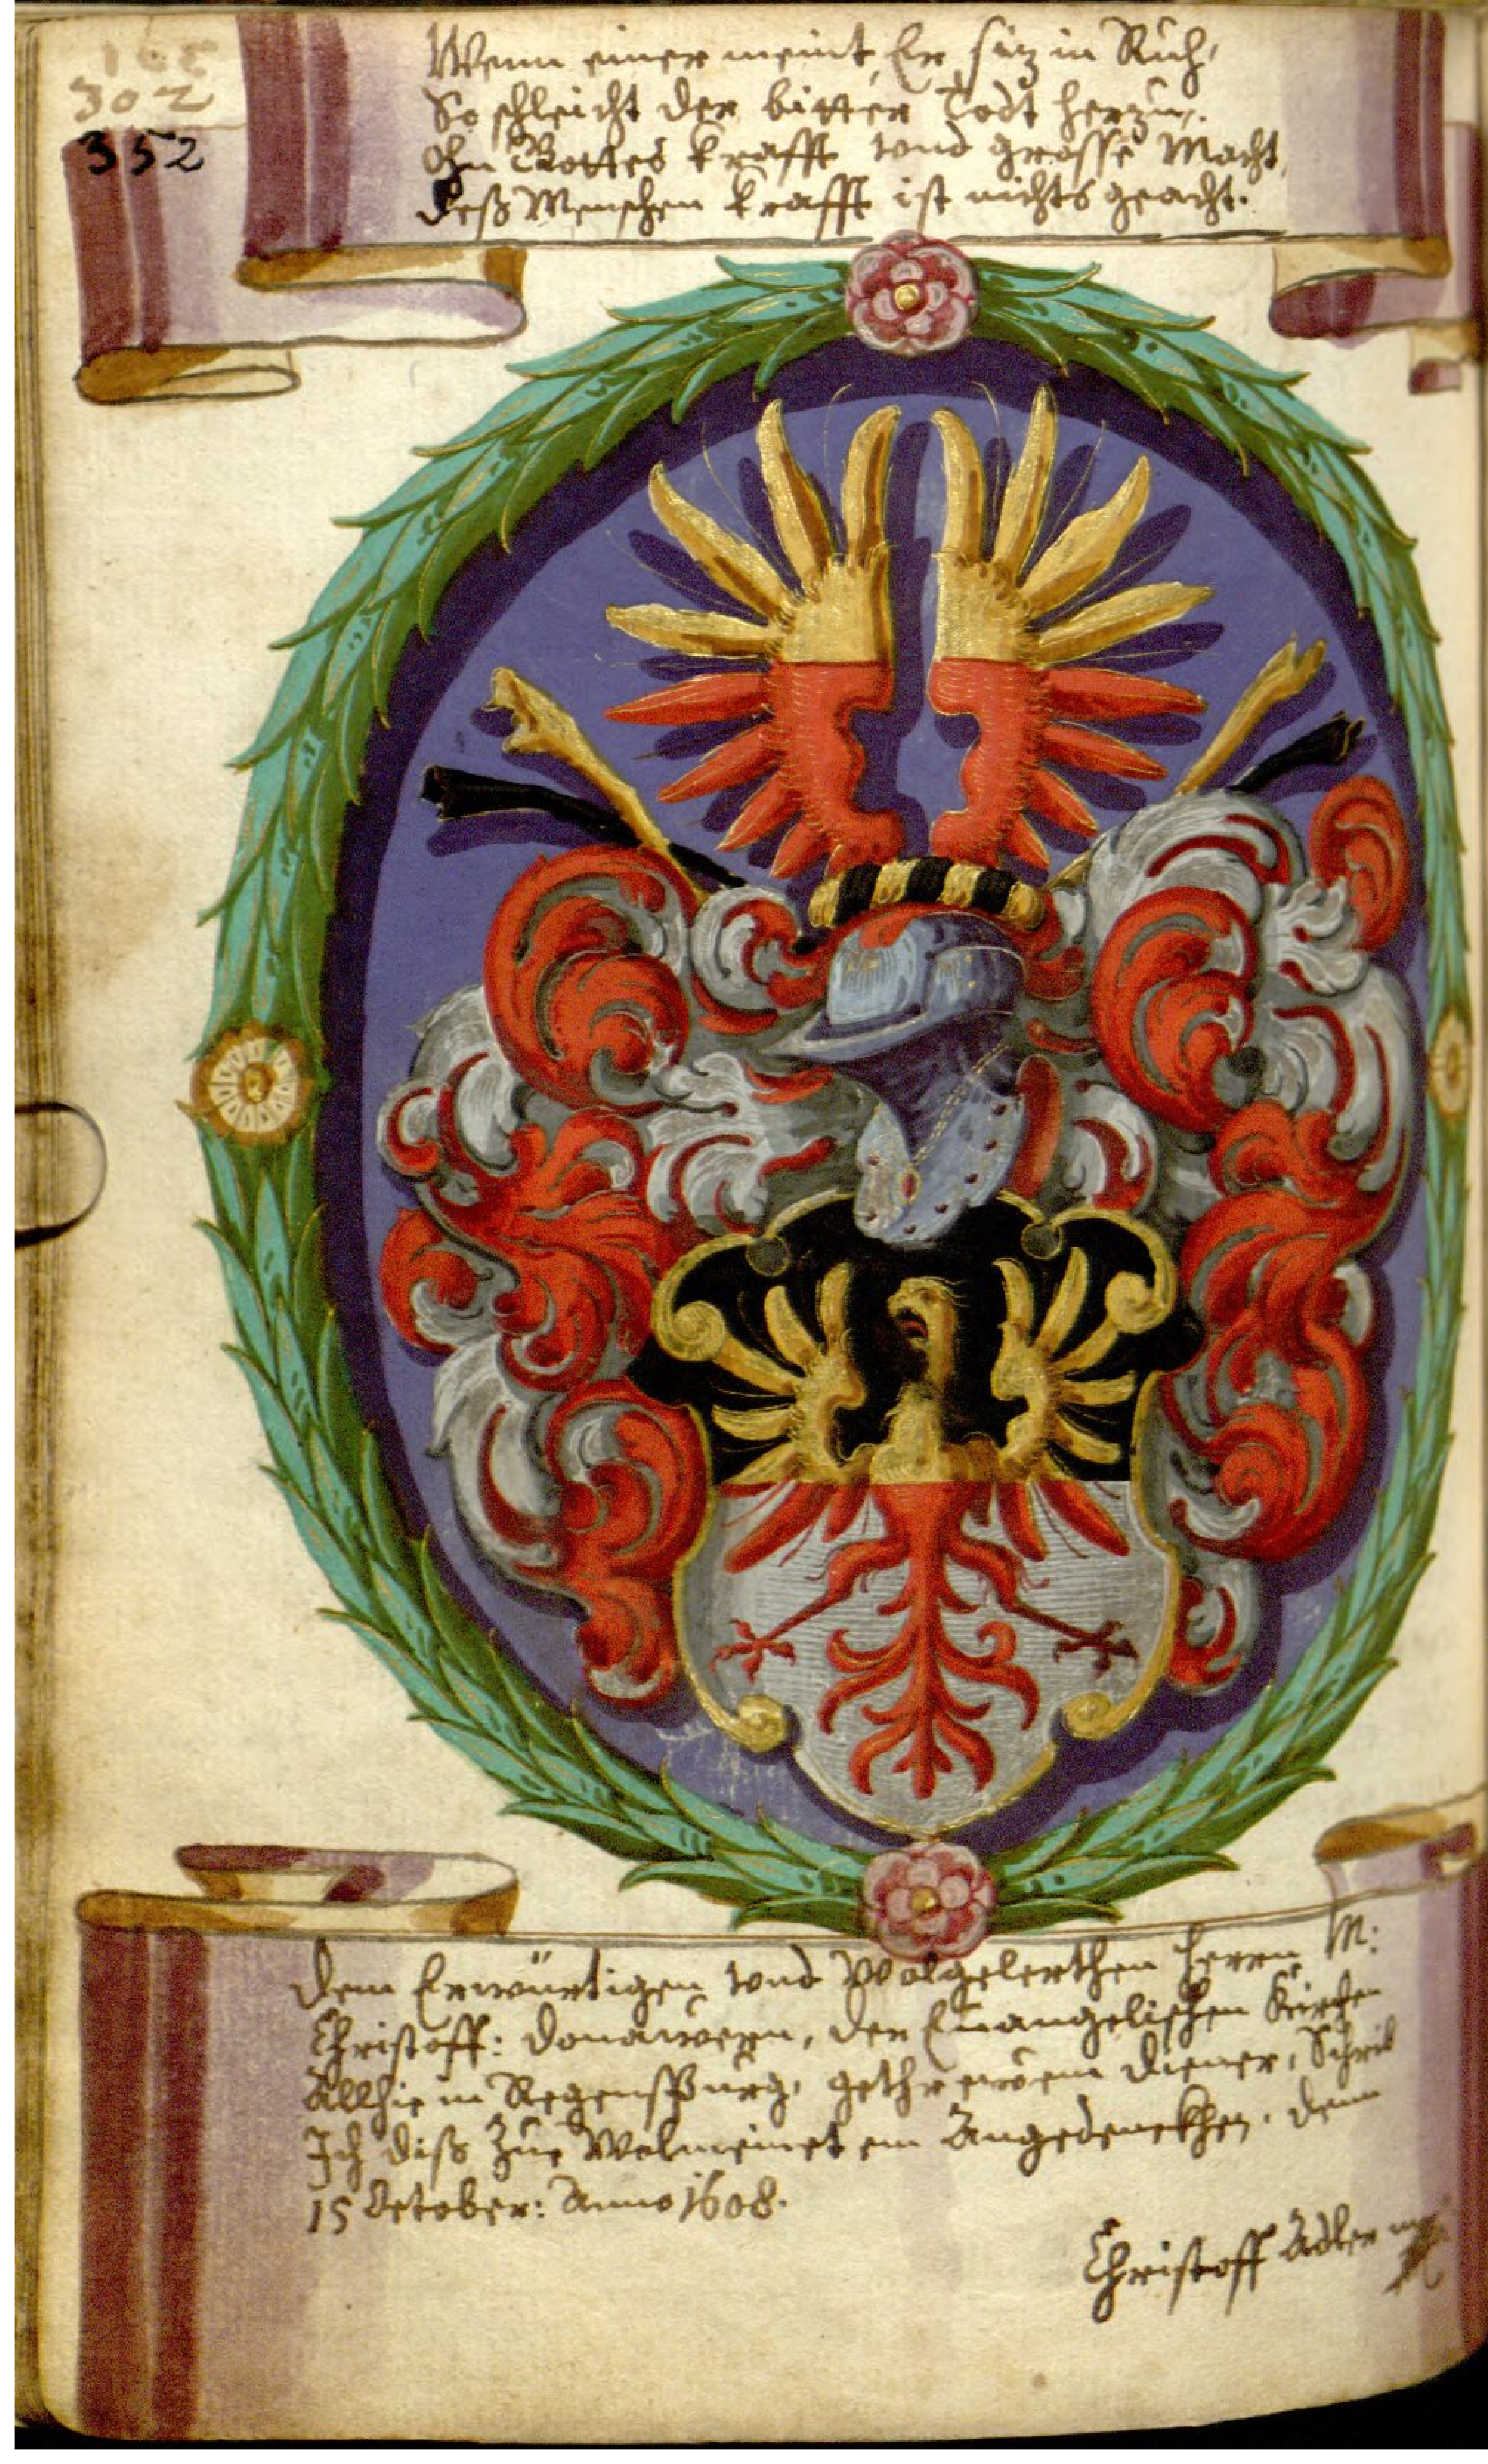 302
352
Wenn einer meint, Er sitz in Ruh,
So schleicht der bitter Todt herzu.
Ohn Gottes krafft vnd grosse Macht,
Deß Menschen krafft ist nichts geacht.
Dem Erwürtigen vnd Wolgelerthen Herrn M:
Christoff: Donawern, der Euangelischen Kirchen
Allhie in Regenspurg, gethrewem Diener, Schrib
Ich diß zue Wolmeinet em Angedenckhen. Denn
15 October: Anno 1608.
Christoff Adler